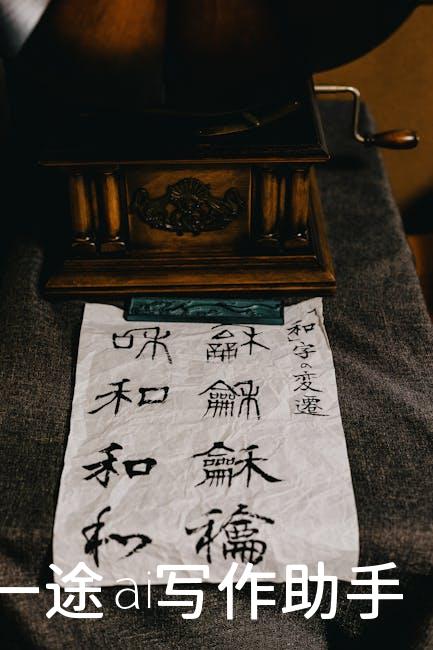 「和」字の変遷
龢龢龢龢
咊和和和
一途ai写作助手